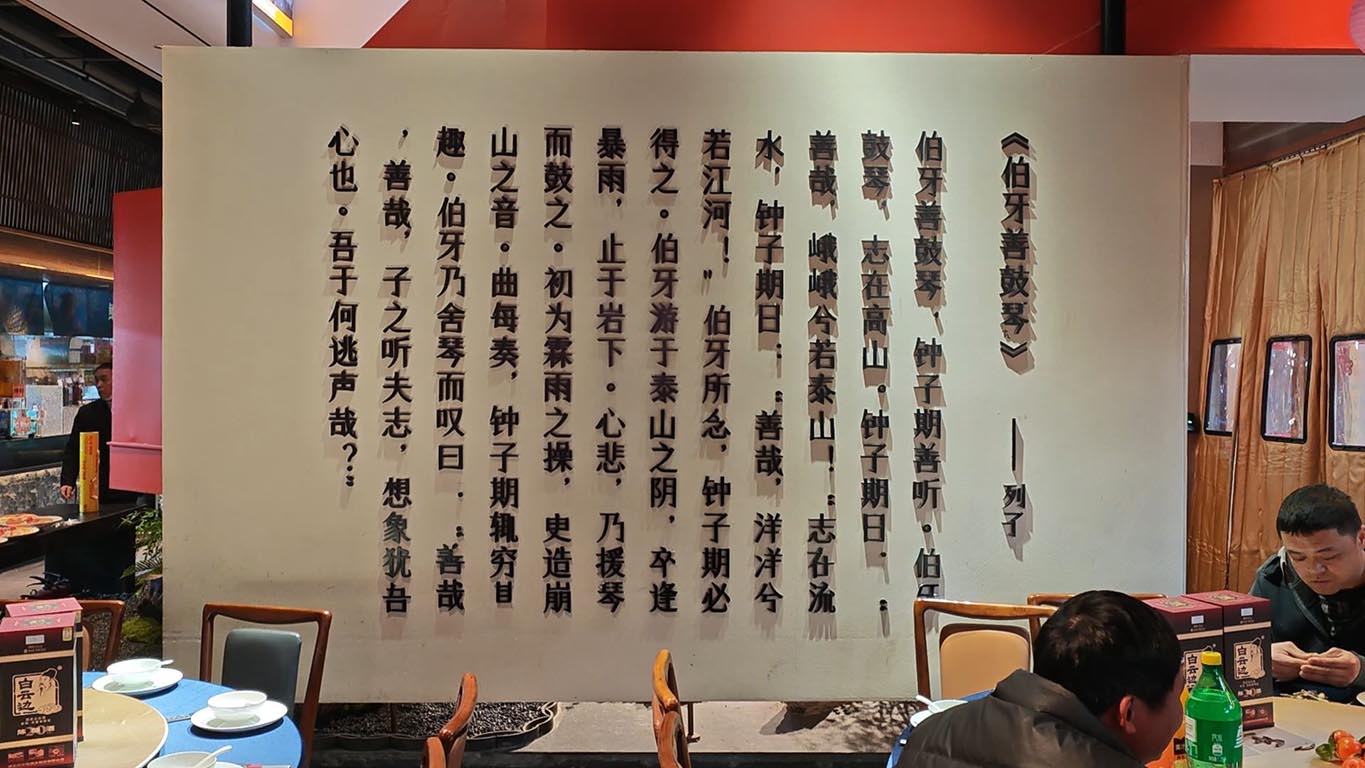 《伯牙善鼓琴》 ——列子
伯牙善鼓琴，钟子期善听。伯牙
鼓琴，志在高山。钟子期日．：
善哉，峨峨兮若泰山！：志在流
水，钟子期日：：善哉，洋洋兮
若江河！”伯牙所念，钟子期必
得之。伯牙游于泰山之阴，卒逢
暴雨，止于岩下。心悲，乃援琴
而鼓之。初为霖雨之操，史造崩
山之音。曲每奏，钟子期辄穷甘
趣。伯牙乃舍琴而叹曰．：善哉
，善哉，子之听夫志，想象犹吾
心也。吾于何逃声哉？：
白云边
陈20酿
白云边
汽水